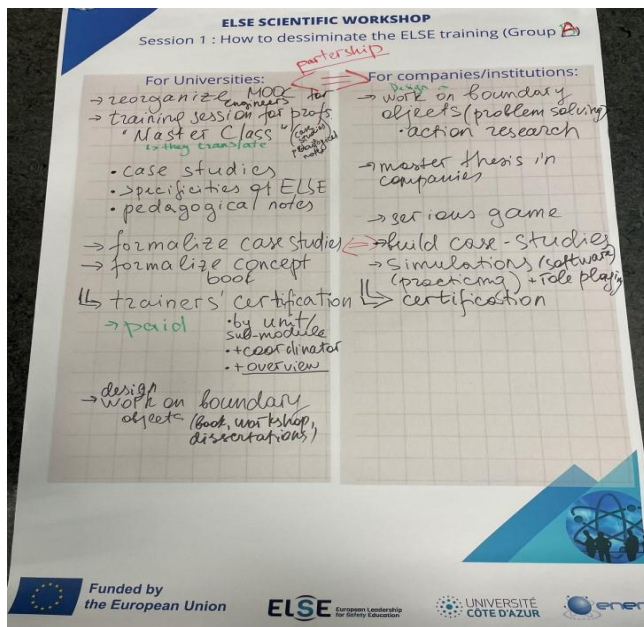 ELSE SCIENTIFIC WORKSHOP
Session 1 : How to dessiminate the ELSE training (Group A)
partership
For Universities:
→ reorganize MOOC for
engineers
→ training session for profs
"Master Class"
↳ they translate
(case
studies
• case studies
• specificities of ELSE
• pedagogical notes
→ formalize case studies
→ formalize concept
book
↳ trainers' certification
→ paid
• by unit/
sub-module
• + coordinator
• + overview
design
→ work on boundary
objects (book, workshop,
dissertations)
For companies/institutions:
Design
→ work on boundary
objects (problem solving)
• action research
→ master thesis in
companies
→ serious game
→ build case-studies
→ simulations (software)
(practicing) + role playing
↳ certification
Funded by
the European Union
ELSE European Leadership
for Safety Education
UNIVERSITÉ
CÔTE D'AZUR
ener